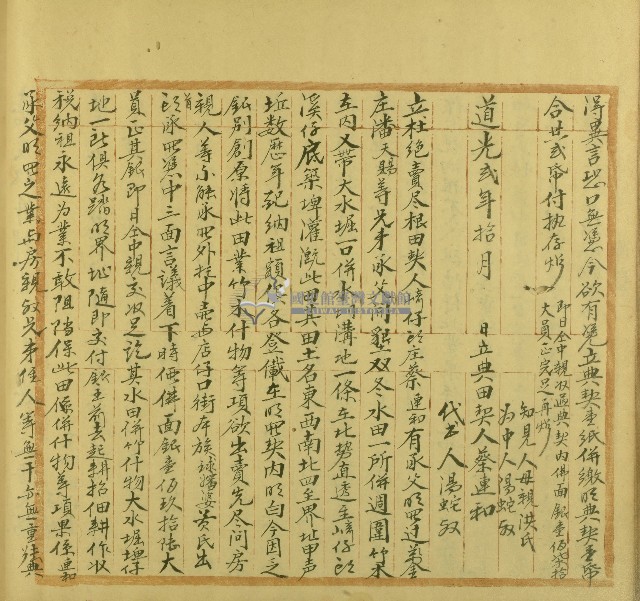 得異言恐口無憑今欲有憑立典契壹紙併繳明典契壹帋
合共弍帋付执存炤
即日仝中親收過典契內佛面銀壹佰柒拾
大員正完足再炤
知見人母親洪氏
為中人湯蛇
道光弍年拾月 日立典田契人蔡連和
代書人湯蛇
立杜絕賣尽根田契人崎仔頭庄蔡連和有承父明買過
庄潘天賜等兄弟承管犁壹双冬水田一所併週圍竹木
在内又帶大水堀一口併水圳溝地一條在北勢直透至崎仔頭
溪仔底築埤灌漑此田其田土名東西南北四至界址甲声
坵数歷年配納租額条各登儎在明买契内明白今因乏
銀別創原將此田業竹木什物等項欲出賣先尽问房
親人等不能承买外托中壹与店仔口街本族婆黃氏出
頭承买憑中三面言議着下時價佛面銀壹佰玖拾陸大
員正其銀即日仝中親交收足訖其水田併竹什物大水堀埤仔
地一all俱各踏明界址隨即交付銀主前去起耕招佃耕作收
稅納租永遠為業不敢阻擋保此田係併什物等項果係連和
承父明买之業与房親叔兄弟侄人等無干亦無重張典